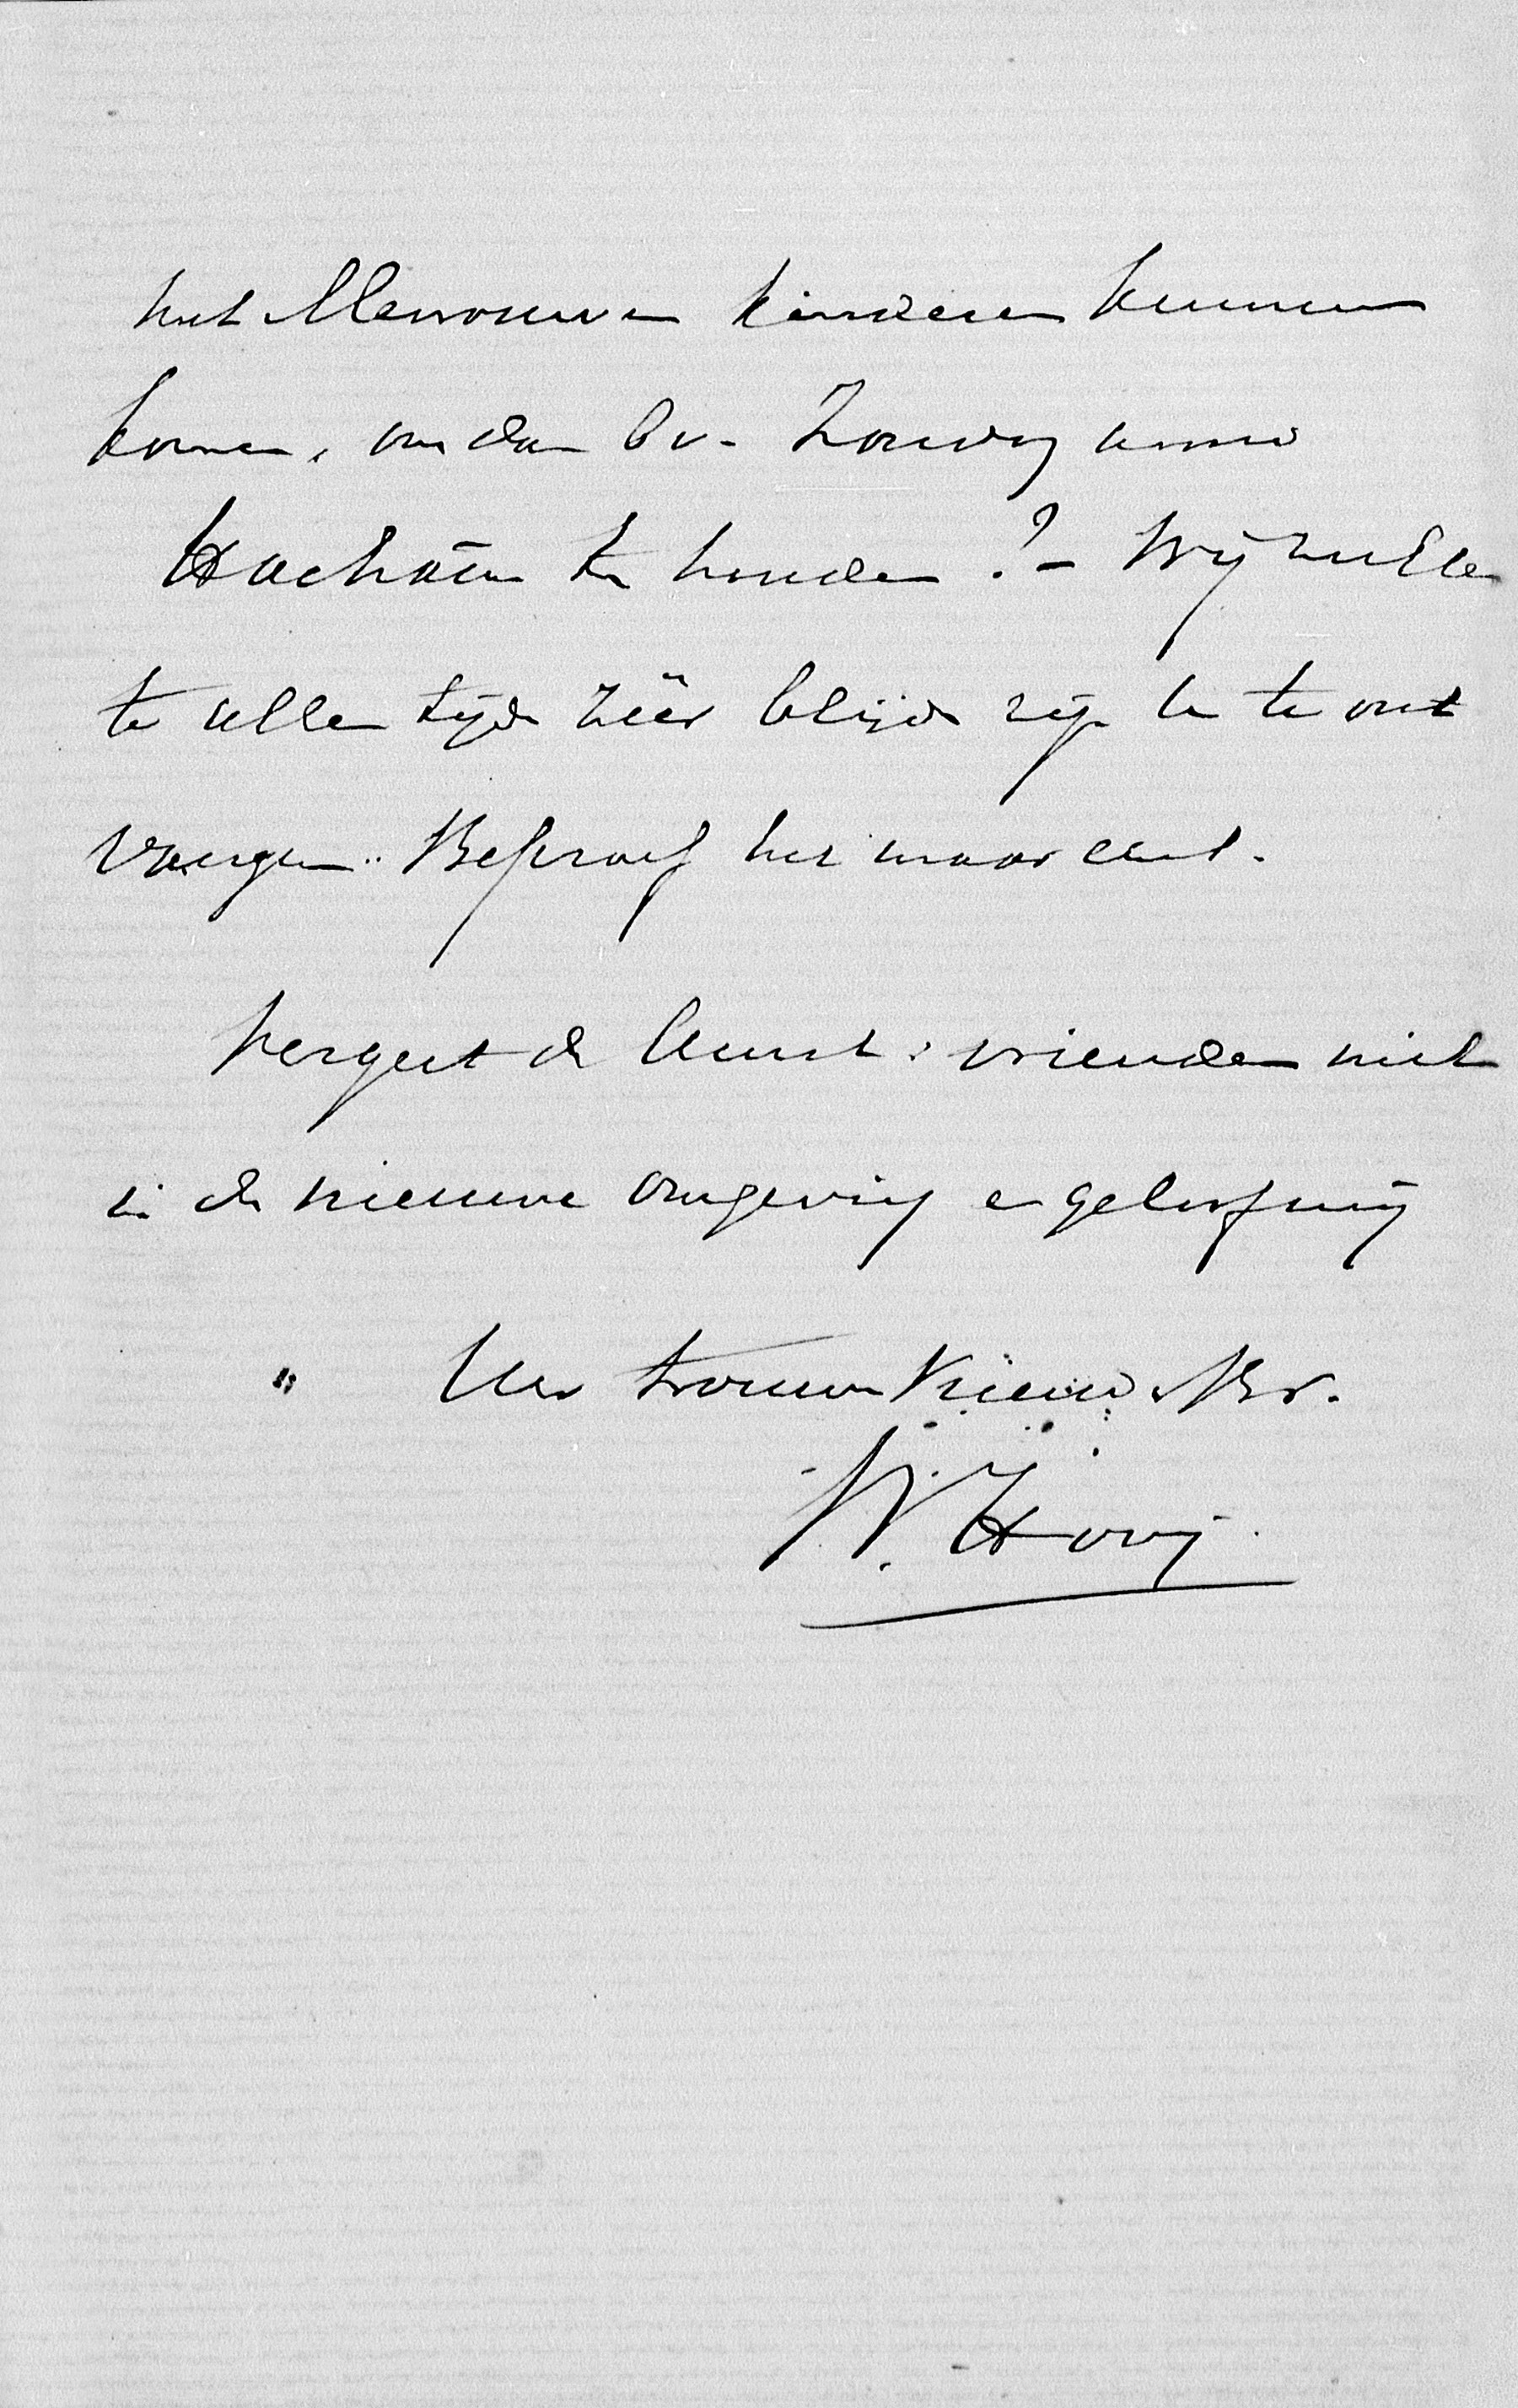 met Mevrouw en kinderen kunnen
komen, om dan bv. Zondag avond
te houden ?- Wij zullen
te allen tijde zéér blijde zijn U te ont
vangen. Beproef het maar eens.
Vergeet de Amst. vrienden niet
in de nieuwe omgeving en geloof mij
Uw trouwe Vriend & Br.
W. Hovy.